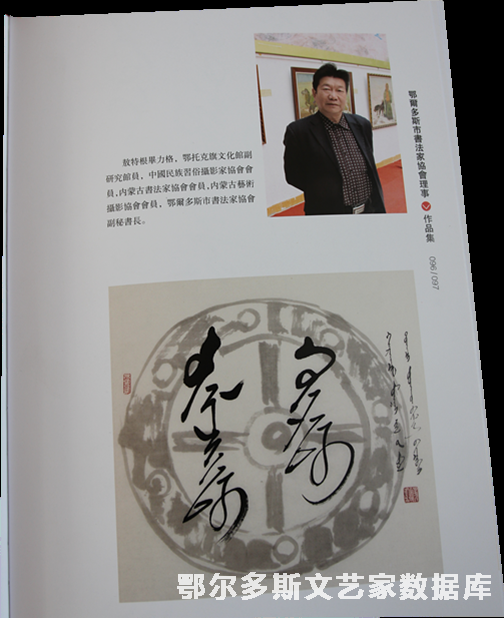 敖特根畢力格，鄂托克旗文化館副
研究館員，中國民族習俗攝影家協會會
員,内蒙古書法家協會會員,内蒙古藝術
攝影協會會員，鄂爾多斯市書法家協會
副秘書長。
鄂爾多斯市書法家協會理事 作品集 096/097
鄂尔多斯文艺家数据库